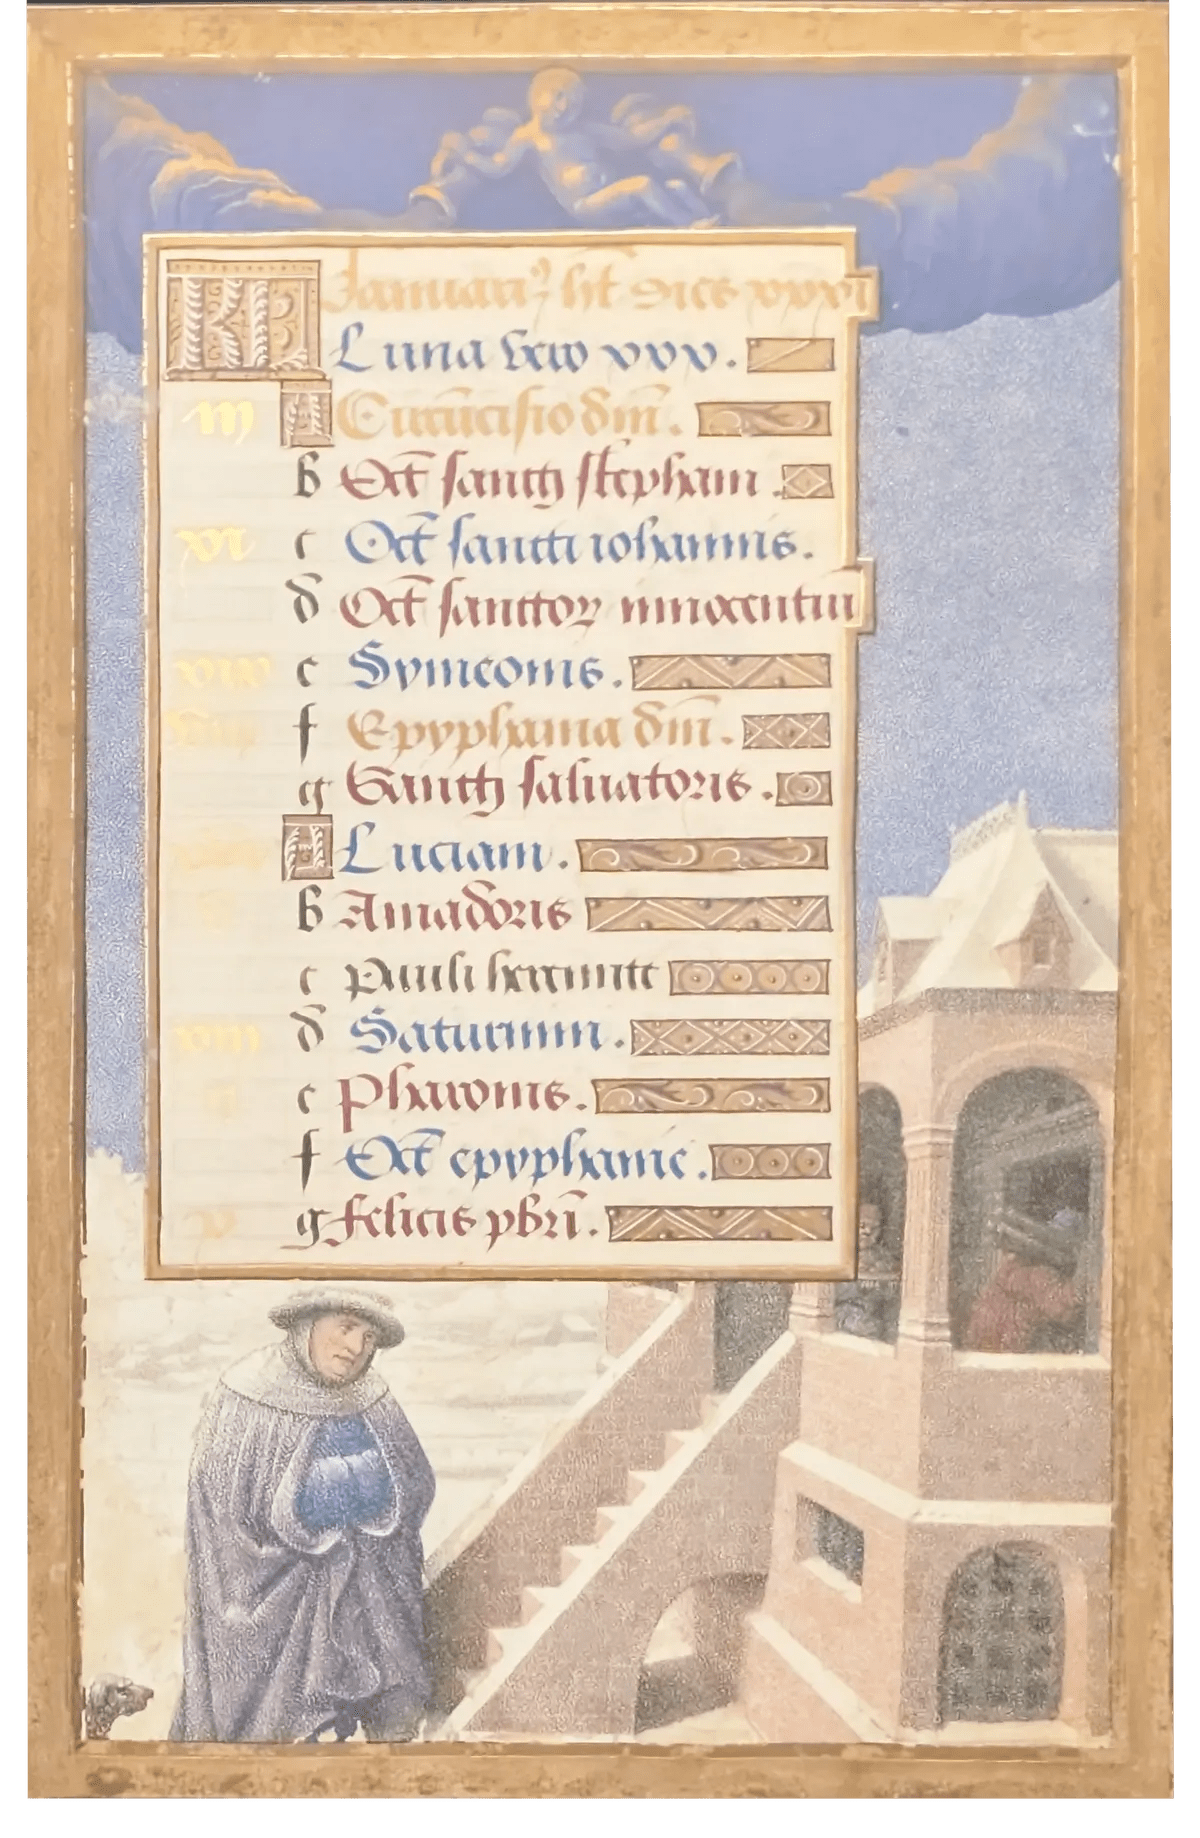 KL Januari⁹ ht dies xxxi
Luna vero xxx.
iii A Circūcisio dñi.
b Oct̄ sancti stephani.
xi c Oct̄ sancti iohannis.
d Oct̄ sanctoꝝ innocentiū
xix e Symeonis.
viii f Epyphania dñi.
g Sancti saluatoris.
A Luciani.
b Amadoris
c Pauli heremite
xiii d Saturnini.
e
f Oct̄ epyphanie.
g Felicis pbri.